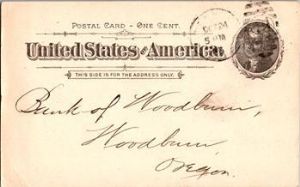 POSTAL CARD - ONE CENT.
United States of America
THIS SIDE IS FOR THE ADDRESS ONLY.
5 PM
Bank of Woodburn,
Woodburn
Oregon.